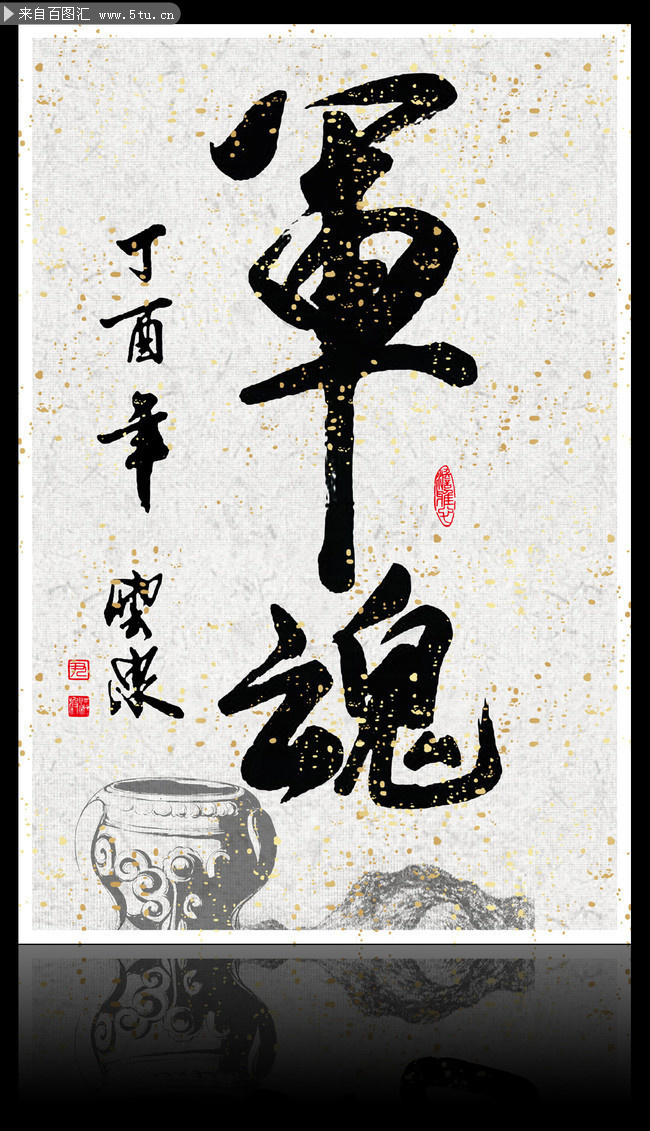 来自百图汇 www.5tu.cn
軍魂
丁酉年